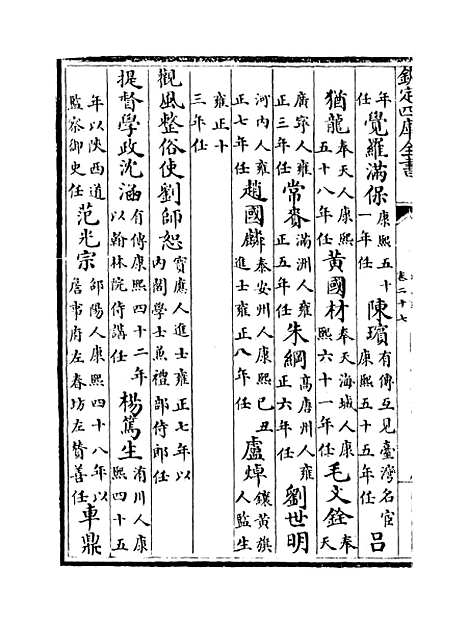 欽定四庫全書 卷二十七
年任覺羅滿保康熙五十一年任陳璸有傳互見臺灣名宦康熙五十五年任呂
猶龍奉天人康熙五十八年任黃國材奉天海城人康熙六十一年任毛文銓奉天
廣寧人雍正三年任常賚滿洲人雍正五年任朱綱高唐州人雍正六年任劉世明
河内人雍正七年任趙國麟泰安州人康熙己丑進士雍正八年任盧焯鑲黃旗人監生
雍正十三年任
觀風整俗使劉師恕寶應人進士雍正七年以内閣學士兼禮部侍郎任
提督學政沈涵有傳康熙四十二年以翰林院侍講任楊篤生洧川人康熙四十五
年以陝西道監察御史任范光宗郃陽人康熙四十八年以詹事府左春坊左贊善任車鼎